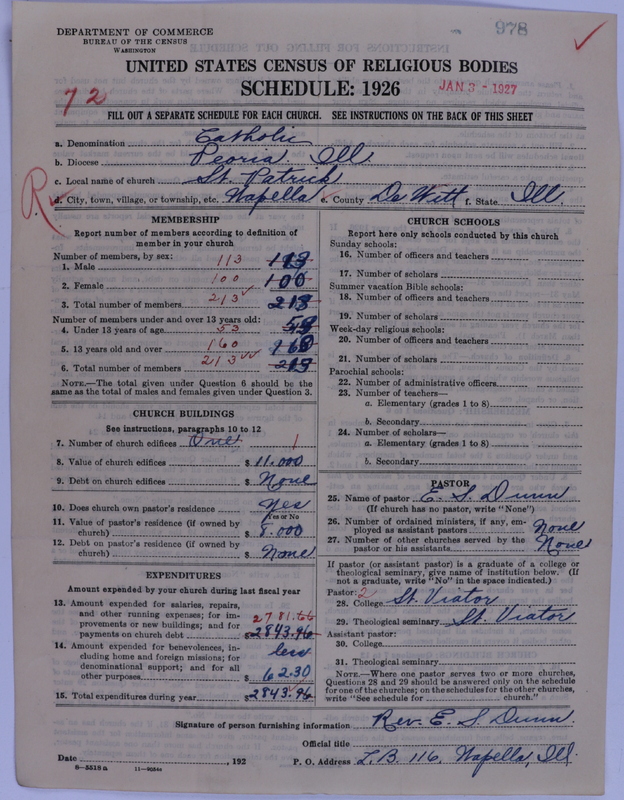 DEPARTMENT OF COMMERCE
BUREAU OF THE CENSUS
WASHINGTON
978
UNITED STATES CENSUS OF RELIGIOUS BODIES
SCHEDULE: 1926
JAN 3 - 1927
72
FILL OUT A SEPARATE SCHEDULE FOR EACH CHURCH. SEE INSTRUCTIONS ON THE BACK OF THIS SHEET
a. Denomination Catholic
b. Diocese Peoria Ill
c. Local name of church St. Patrick
R
d. City, town, village, or township, etc. Wapella e. County De Witt f. State Ill.
MEMBERSHIP
Report number of members according to definition of
member in your church
Number of members, by sex:
1. Male 113 113
2. Female 100 100
3. Total number of members 213 213
Number of members under and over 13 years old:
4. Under 13 years of age 53
5. 13 years old and over 160
6. Total number of members 213 213
NOTE.—The total given under Question 6 should be the
same as the total of males and females given under Question 3.
CHURCH BUILDINGS
See instructions, paragraphs 10 to 12
7. Number of church edifices One 1
8. Value of church edifices $ 11.000
9. Debt on church edifices $ None
10. Does church own pastor's residence Yes
Yes or No
11. Value of pastor's residence (if owned by
church) $ 8.000
12. Debt on pastor's residence (if owned by
church) $ None
EXPENDITURES
Amount expended by your church during last fiscal year
13. Amount expended for salaries, repairs,
and other running expenses; for im-
provements or new buildings; and for 2781.66
payments on church debt $ 2843.96
14. Amount expended for benevolences, in- less
cluding home and foreign missions; for
denominational support; and for all
other purposes $ 62.30
15. Total expenditures during year $ 2843.96
CHURCH SCHOOLS
Report here only schools conducted by this church
Sunday schools:
16. Number of officers and teachers
17. Number of scholars
Summer vacation Bible schools:
18. Number of officers and teachers
19. Number of scholars
Week-day religious schools:
20. Number of officers and teachers
21. Number of scholars
Parochial schools:
22. Number of administrative officers
23. Number of teachers—
a. Elementary (grades 1 to 8)
b. Secondary
24. Number of scholars—
a. Elementary (grades 1 to 8)
b. Secondary
PASTOR
25. Name of pastor E. S. Dunn
(If church has no pastor, write "None")
26. Number of ordained ministers, if any, em-
ployed as assistant pastors None
27. Number of other churches served by the
pastor or his assistants None
If pastor (or assistant pastor) is a graduate of a college or
theological seminary, give name of institution below. (If
not a graduate, write "No" in the space indicated.)
Pastor: 2
28. College St. Viator
29. Theological seminary St. Viator
Assistant pastor:
30. College
31. Theological seminary
NOTE.—Where one pastor serves two or more churches,
Questions 28 and 29 should be answered only on the schedule
for one of the churches; on the schedules for the other churches,
write "See schedule for church."
Signature of person furnishing information Rev. E. S. Dunn
Official title
Date , 192 P. O. Address L. B. 116, Wapella, Ill.
8—5518 a 11—90844